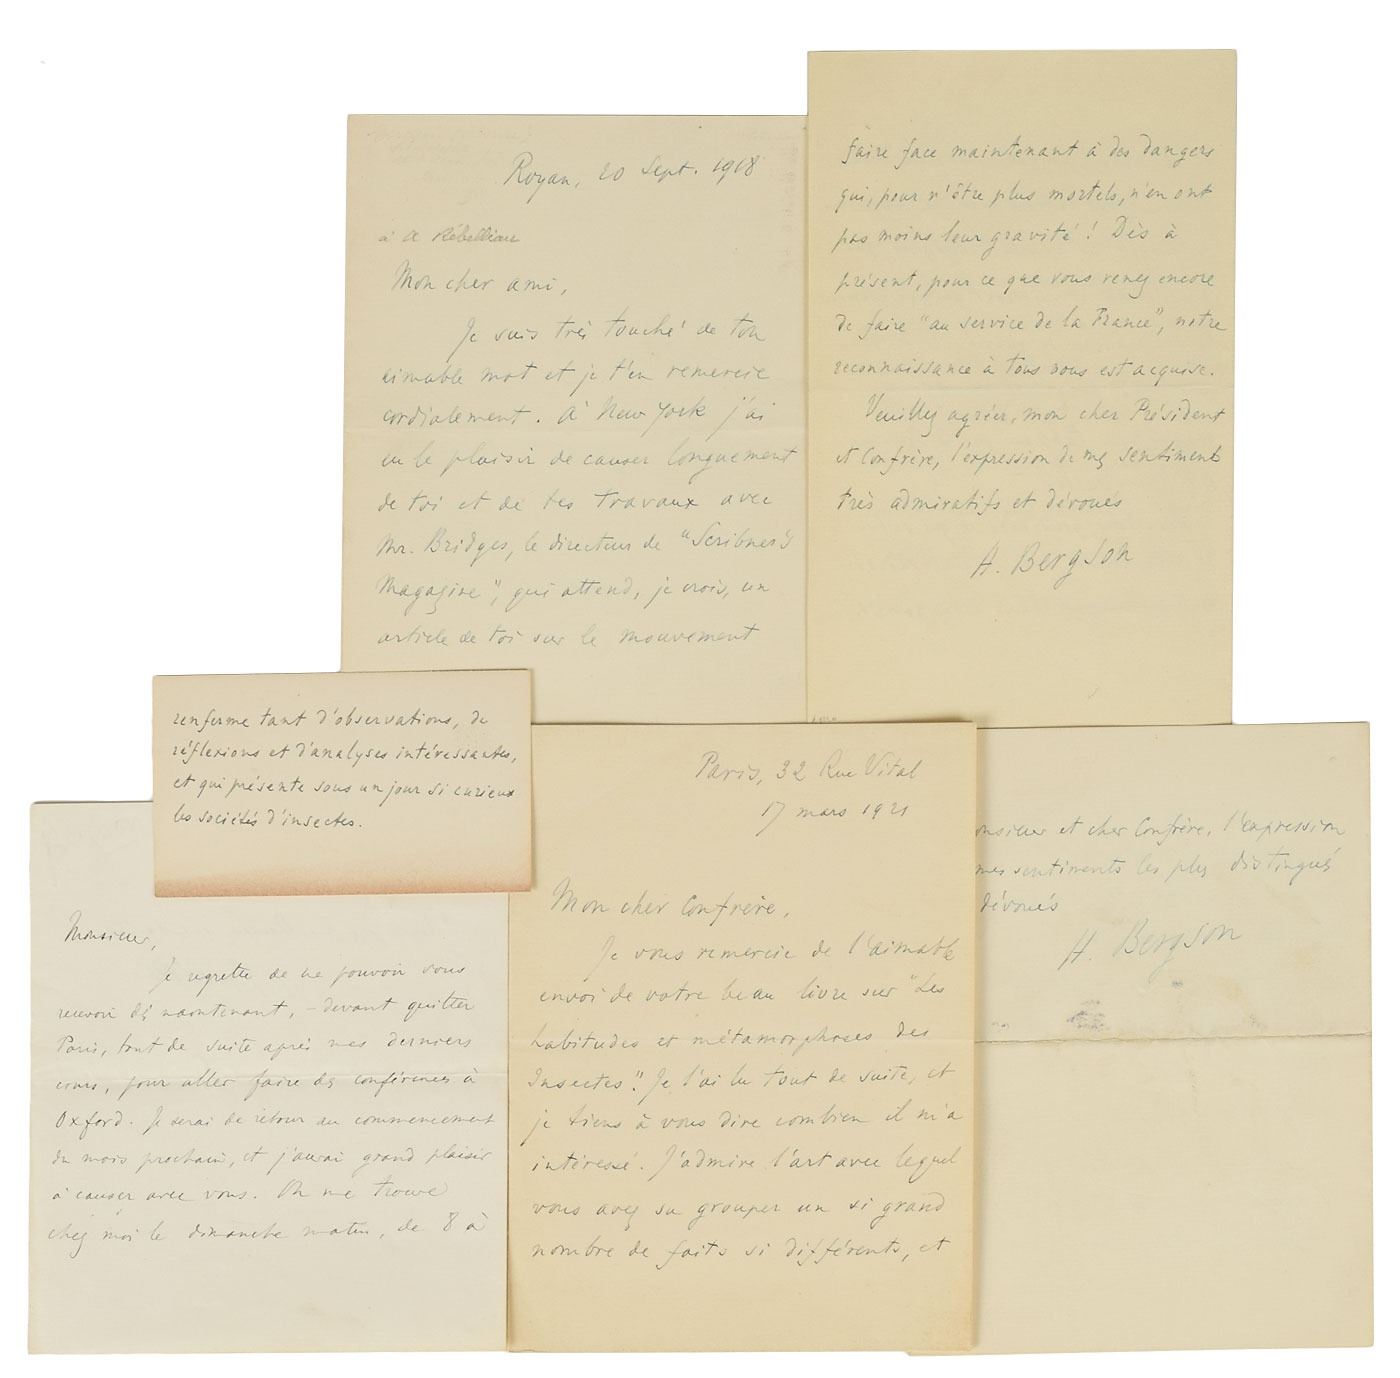 Royan, 20 Sept. 1918
à A Rébelliau
Mon cher ami,
Je suis très touché de ton
aimable mot et je t'en remercie
cordialement. À New York j'ai
eu le plaisir de causer longuement
de toi et de tes travaux avec
Mr. Bridges, le directeur de "Scribner's
Magazine", qui attend, je crois, un
article de toi sur le mouvement
faire face maintenant à des dangers
qui, pour n'être plus mortels, n'en ont
pas moins leur gravité ! Dès à
présent, pour ce que vous venez encore
de faire "au service de la France", notre
reconnaissance à tous vous est acquise.
Veuillez agréer, mon cher Président
et Confrère, l'expression de mes sentiments
très admiratifs et dévoués
H. Bergson
renferme tant d'observations, de
réflexions et d'analyses intéressantes,
et qui présente sous un jour si curieux
les sociétés d'insectes.
Monsieur,
Je regrette de ne pouvoir vous
recevoir dès maintenant, – devant quitter
Paris, tout de suite après mes derniers
cours, pour aller faire des conférences à
Oxford. Je serai de retour au commencement
du mois prochain, et j'aurai grand plaisir
à causer avec vous. On me trouve
chez moi le dimanche matin, de 8 à
Paris, 32 Rue Vital
17 mars 1921
Mon cher Confrère,
Je vous remercie de l'aimable
envoi de votre beau livre sur "Les
habitudes et métamorphoses des
Insectes". Je l'ai lu tout de suite, et
je tiens à vous dire combien il m'a
intéressé. J'admire l'art avec lequel
vous avez su grouper un si grand
nombre de faits si différents, et
onsieur et cher Confrère, l'expression
mes sentiments les plus distingués
dévoués
H. Bergson